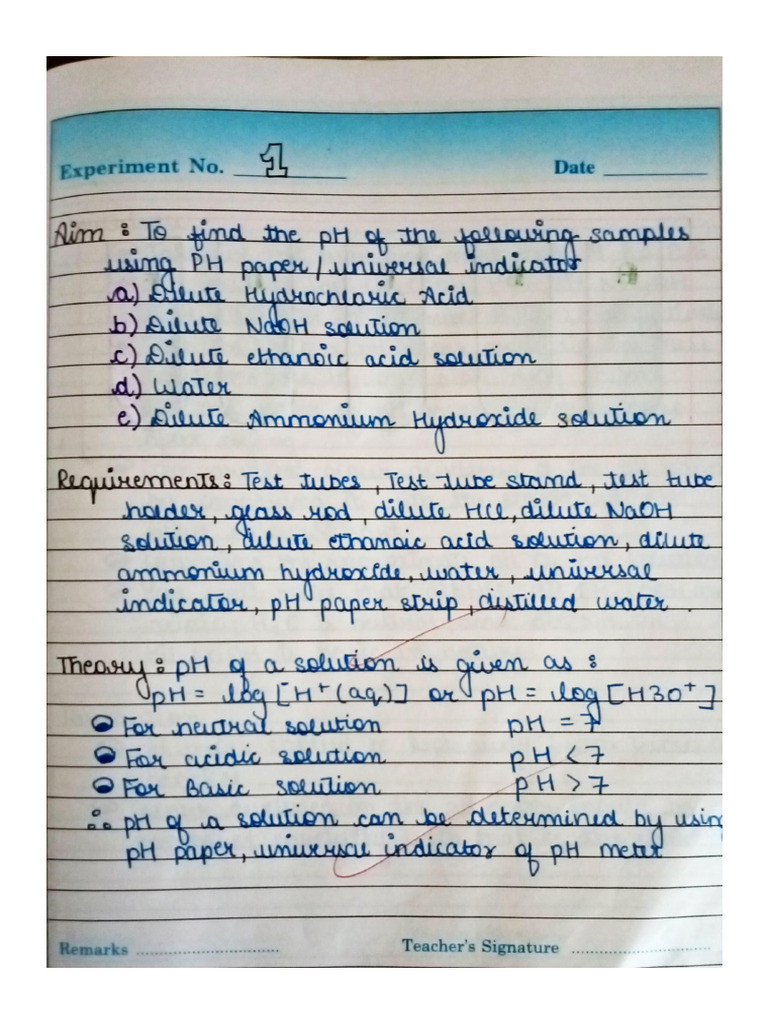 Experiment No. 1 Date
Aim : To find the pH of the following samples
using PH paper/universal indicator
a) Dilute Hydrochloric Acid
b) Dilute NaOH solution
c) Dilute ethanoic acid solution
d) Water
e) Dilute Ammonium Hydroxide solution
Requirements : Test tubes, Test tube stand, test tube
holder, glass rod, dilute HCl, dilute NaOH
solution, dilute ethanoic acid solution, dilute
ammonium hydroxide, water, universal
indicator, pH paper strip, distilled water.
Theory : pH of a solution is given as :
pH = log [H+(aq)] or pH = log [H3O+]
For neutral solution pH = 7
For acidic solution pH < 7
For Basic solution pH > 7
∴ pH of a solution can be determined by using
pH paper, universal indicator of pH meter
Remarks Teacher's Signature